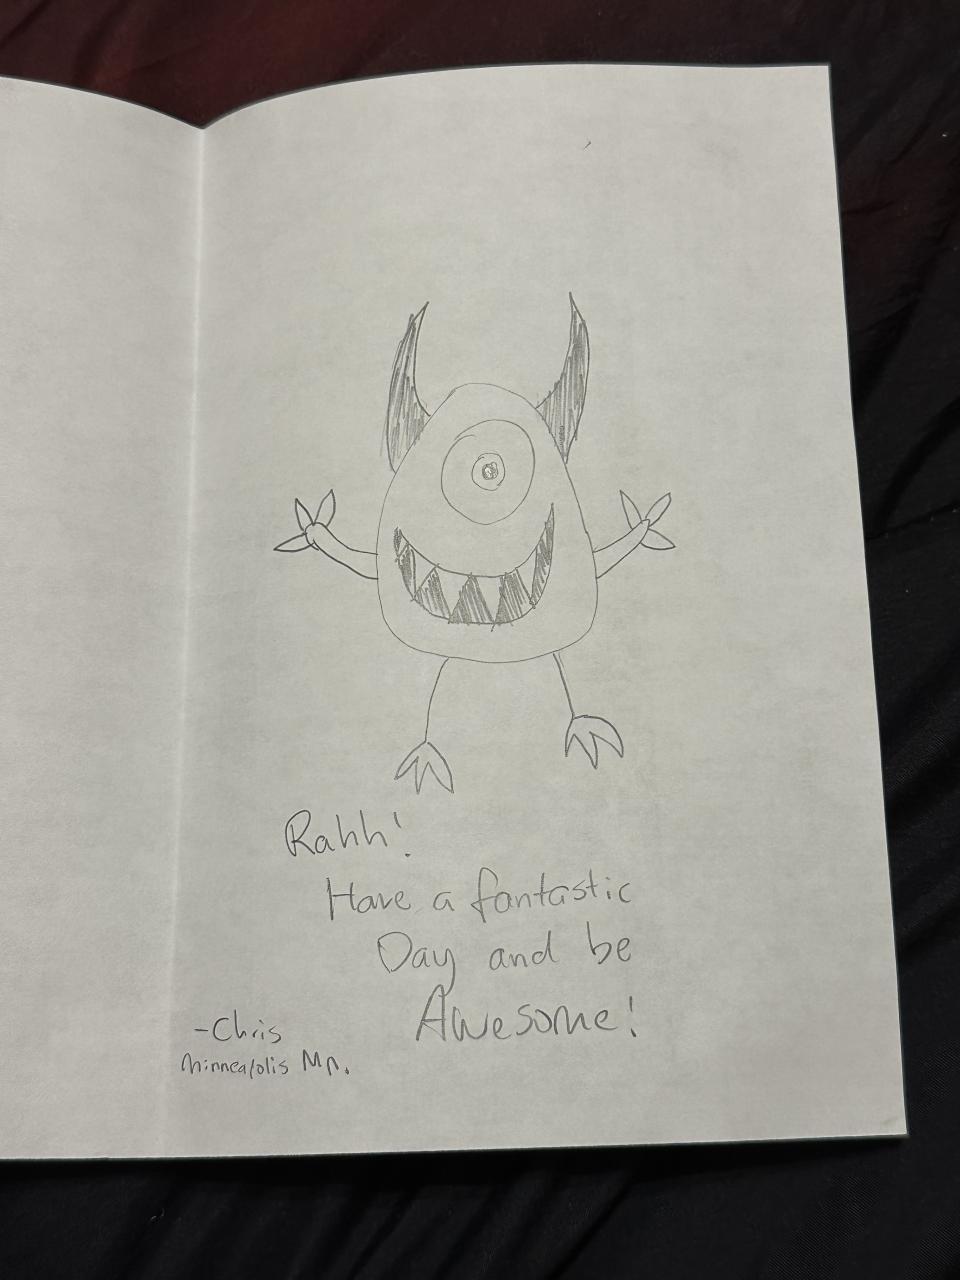 Rahh!
Have a fantastic
Day and be
Awesome!
-Chris
Minneapolis Mn.